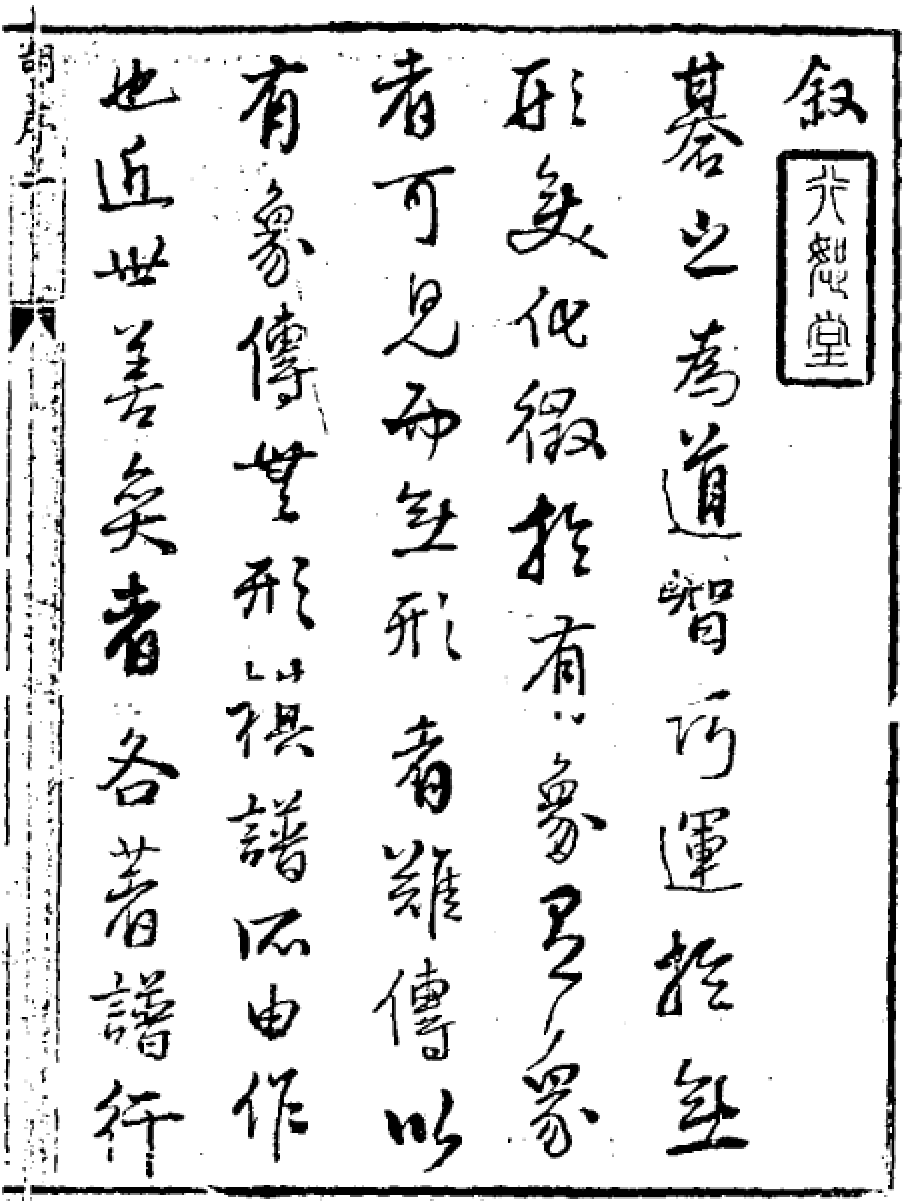 叙
行恕堂
碁之為道智巧運於無
形變化徵於有象有象
者可見而無形者難傳以
有象傳無形此棋譜所由作
也近世善奕者各著譜行
胡序 一